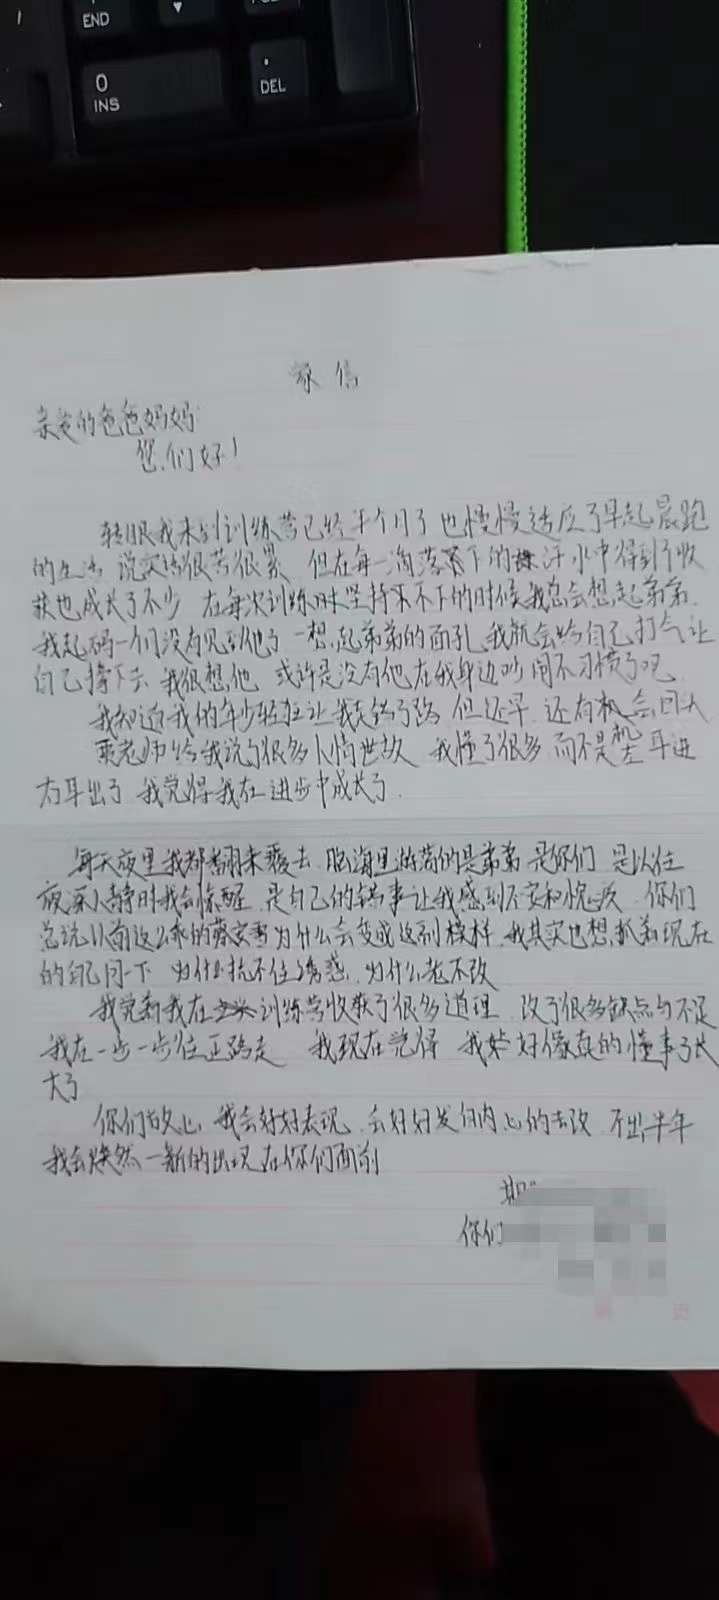 END
0
INS
.
DEL
家信
亲爱的爸爸妈妈:
您们好!
转眼我来到训练营已经半个月了 也慢慢适应了早起晨跑
的生活 说实话很苦很累 但在每一滴落下的汗水中得到了收
获也成长了不少 在每次训练时坚持不下的时候我总会想起弟弟
我起码一个月没有见到他了 一想起弟弟的面孔 我就会给自己打气让
自己撑下去 我很想他 或许是没有他在我身边吵闹不习惯了吧
我知道我的年少轻狂让我走错了路 但还早 还有机会回头
老师给我说了很多人情世故 我懂了很多 而不是左耳进
右耳出了 我觉得我在进步中成长了
每天夜里我都翻来覆去 脑海里游荡的是弟弟 是你们 是以往
夜深人静时我会惊醒 是自己的错事让我感到不安和愧疚 你们
总说以前这么乖的为什么会变成这副模样 我其实也想抓着现在
的自己问一下 为什么抗不住诱惑 为什么老不改
我觉着我在训练营收获了很多道理 改了很多缺点与不足
我在一步一步往正路走 我现在觉得 我好像真的懂事了长
大了
你们放心 我会好好表现 会好好发自内心的去改 不出半年
我会焕然一新的出现在你们面前
你们
页